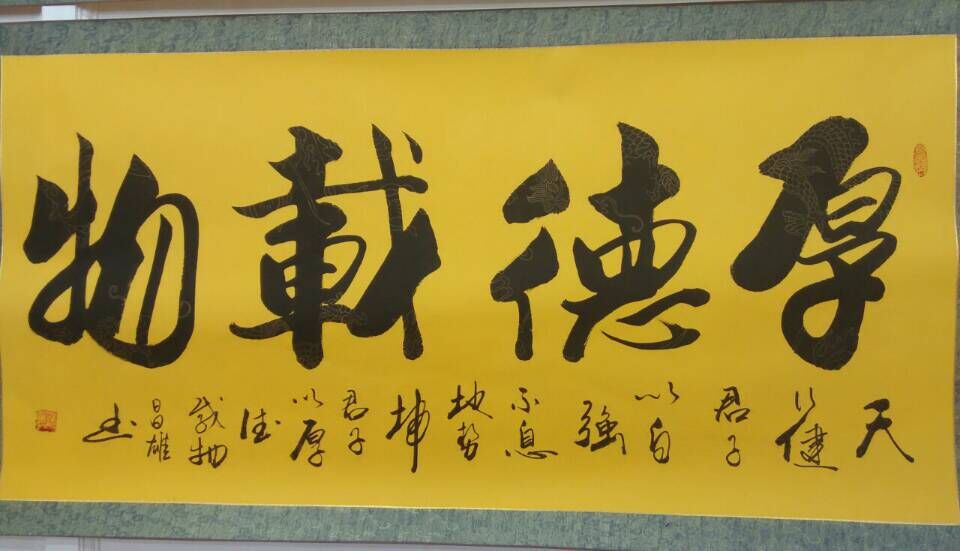 厚德載物
天行健君子以自強不息地勢坤君子以厚德載物昌雄书